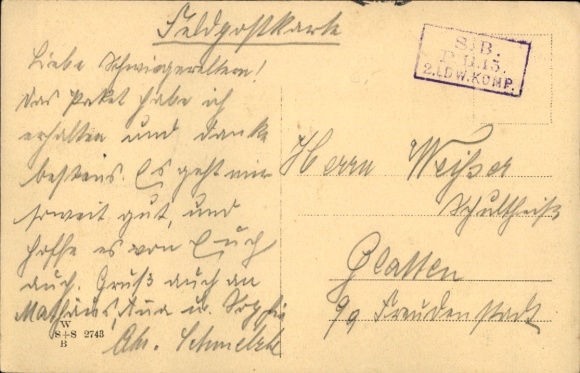 Feldpostkarte
S.B.
2.LDW.KOMP.
Liebe Schwiegereltern!
Das Paket habe ich
erhalten und danke
bestens. Es geht mir
soweit gut, und
hoffe es von Euch
auch. Gruß auch an
Mathäus, u. Sophie
Chr.
Herrn Weißer
Schultheiß
Glatten
Freudenstadt
W
S+S 2743
B